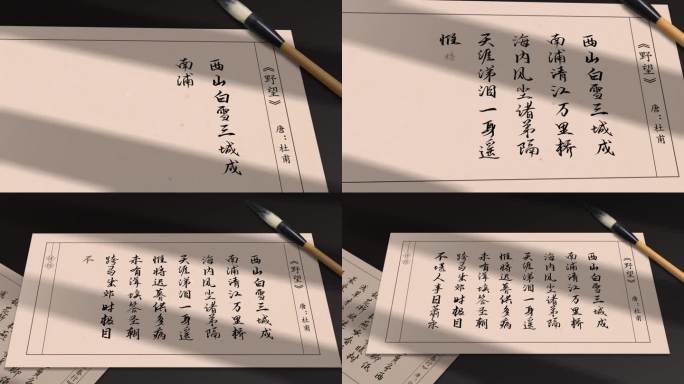 《野望》
唐：杜甫
西山白雪三城戍
南浦
《野望》
唐：杜甫
西山白雪三城戍
南浦清江万里桥
海内风尘诸弟隔
天涯涕泪一身遥
惟将
《野望》
唐：杜甫
西山白雪三城戍
南浦清江万里桥
海内风尘诸弟隔
天涯涕泪一身遥
惟将迟暮供多病
未有涓埃答圣朝
跨马出郊时极目
不
《野望》
唐：杜甫
西山白雪三城戍
南浦清江万里桥
海内风尘诸弟隔
天涯涕泪一身遥
惟将迟暮供多病
未有涓埃答圣朝
跨马出郊时极目
不堪人事日萧条